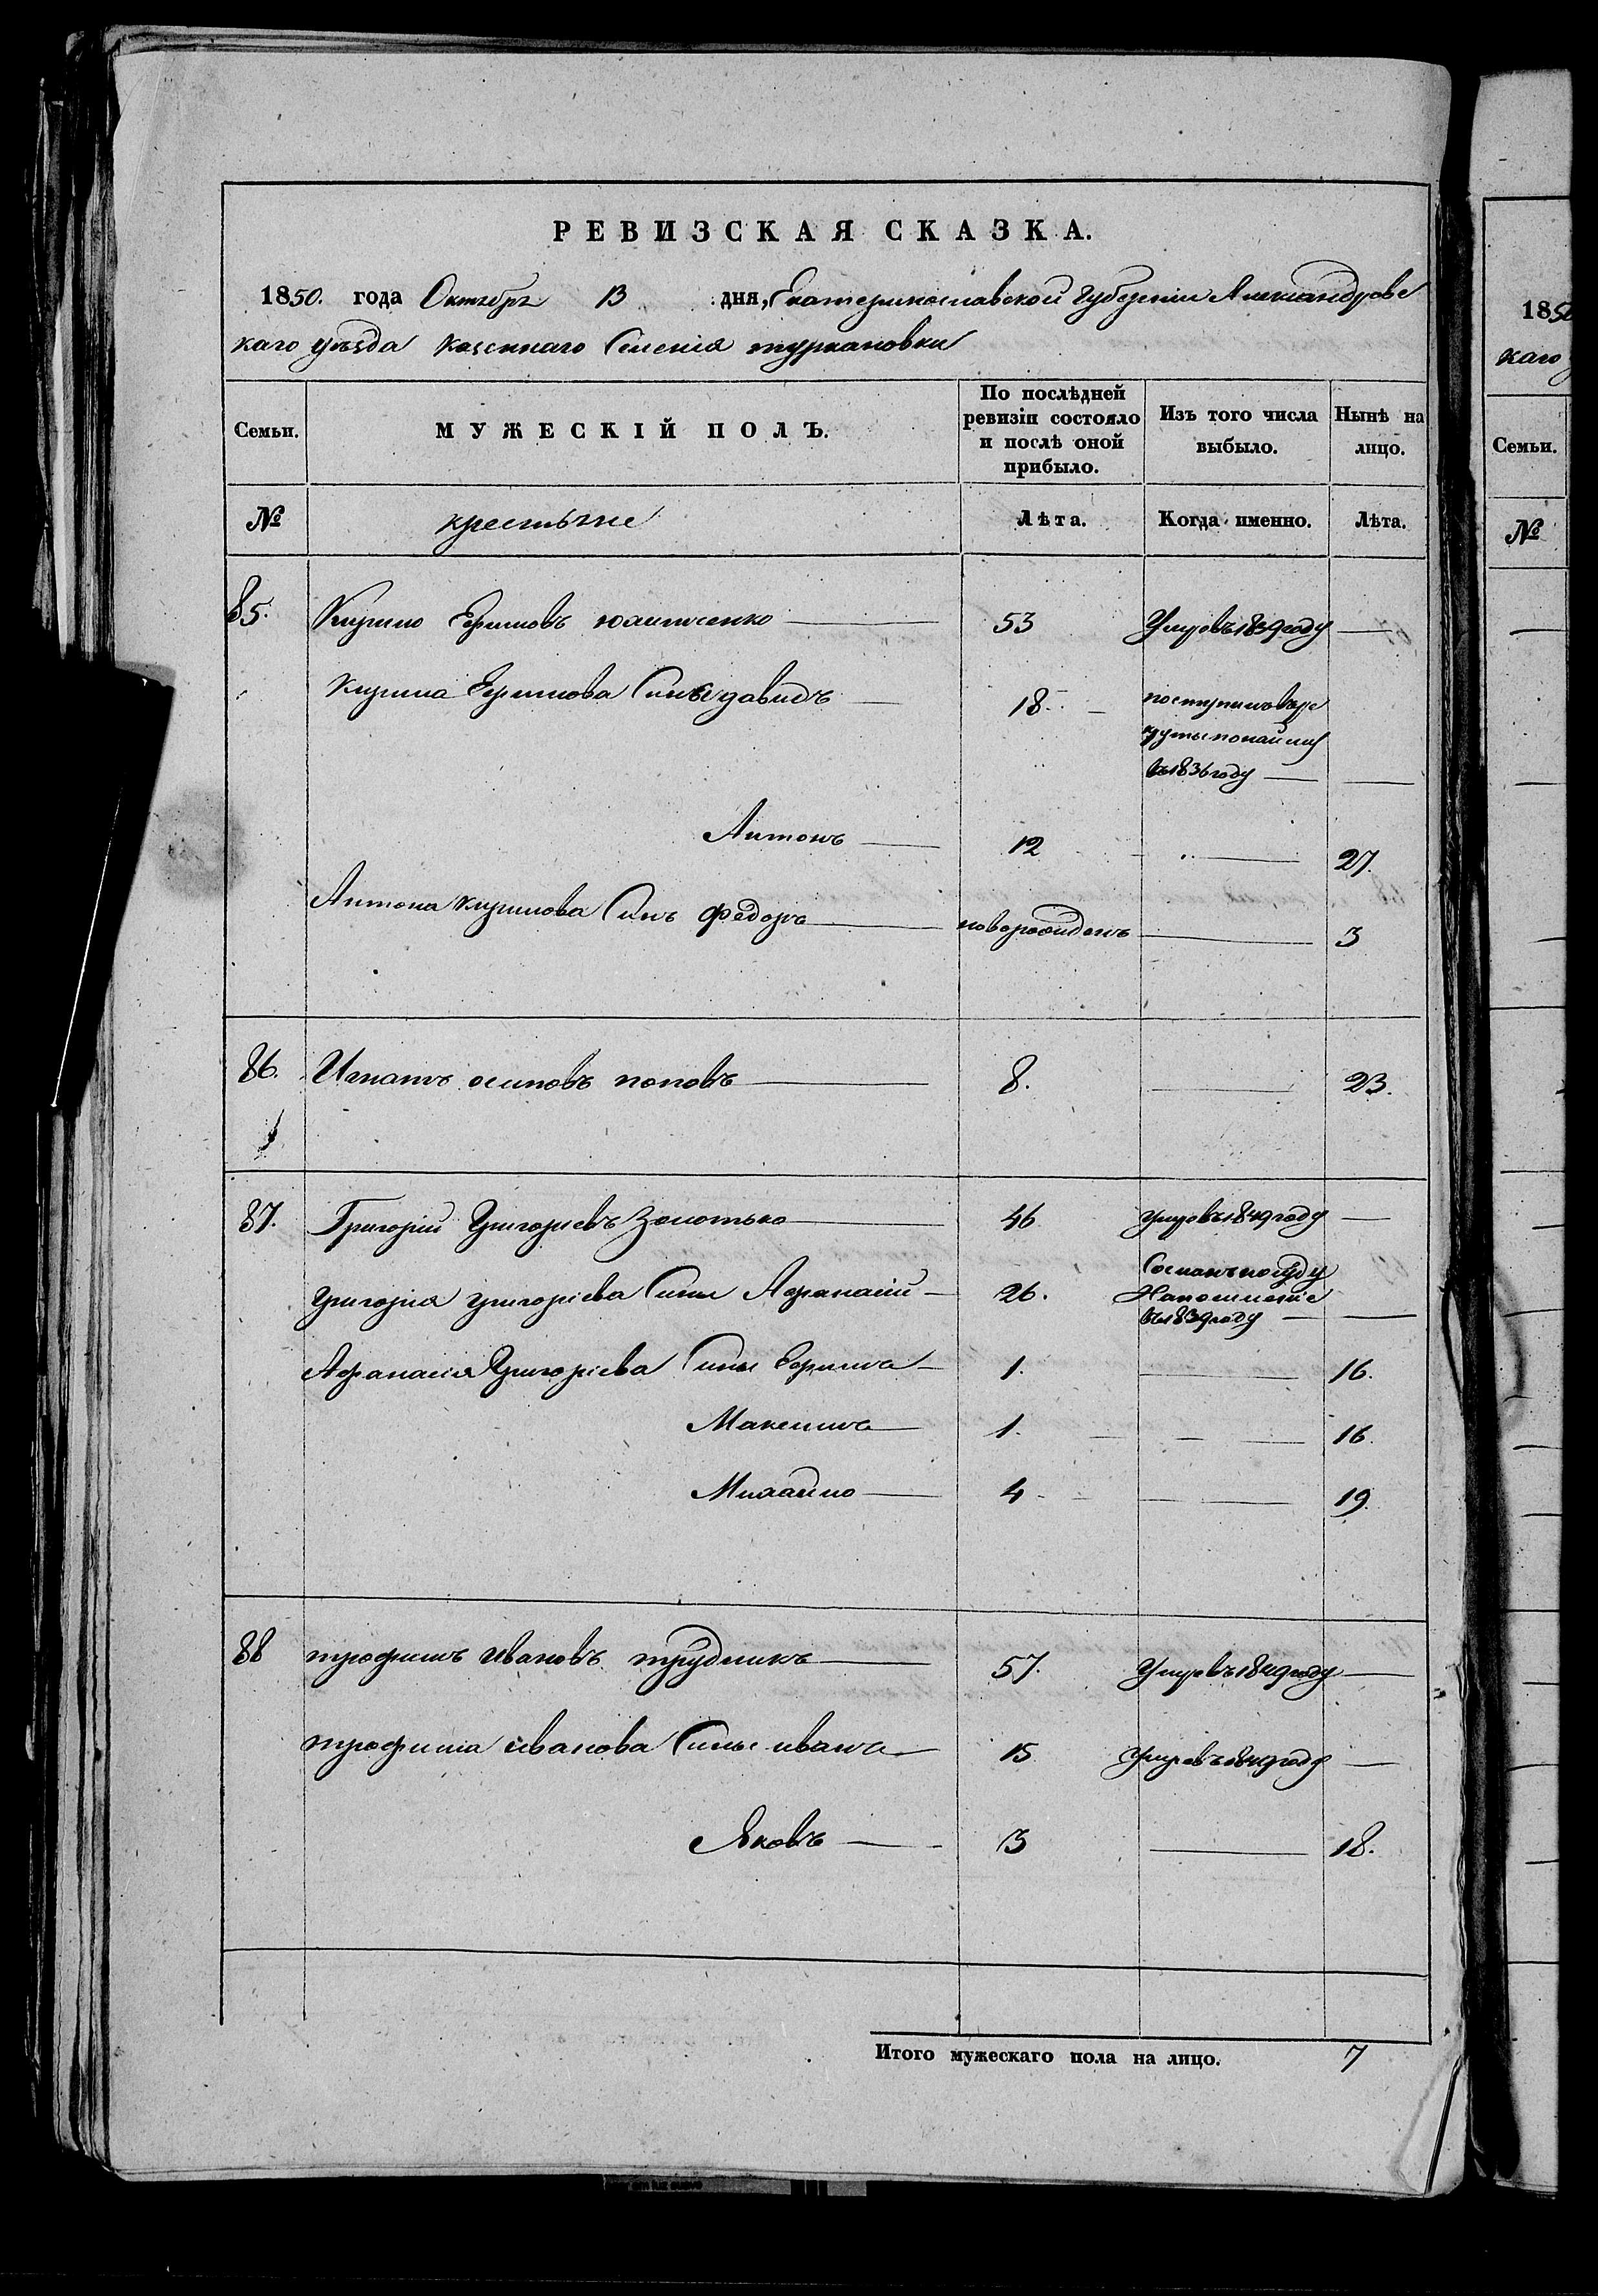 РЕВИЗСКАЯ СКАЗКА.
1850. года Октября 13 дня, Екатеринославской Губерніи Александровс
каго уѣзда Казеннаго Селенія туркановки
Семьи. МУЖЕСКІЙ ПОЛЪ. По послѣдней ревизіи состояло и послѣ оной прибыло. Изъ того числа выбыло. Нынѣ на лицо.
№ крестьяне Лѣта. Когда именно. Лѣта.
85. Кирило Ефимовъ 53 Умръ въ 1839 году
Кирила Ефимова Сынъ давидъ 18. поступилъ въ ре
круты по найму
въ 1836 году
Антонъ 12 27.
Антона Кирилова Сынъ федоръ новорожденъ 3
86. Игнатъ осиповъ поповъ 8. 23.
87. Григорій Григорьевъ Золотько 46 умръ въ 1849 году
Григорія григоріева Сыны Афанасій 26. Сосланъ по суду
На поселеніе
въ 1839 году
Афанасія Григоріева Сыны Ефимъ 1. 16.
Максимъ 1. 16.
Михайло 4 19.
88 трофимъ Ивановъ трудникъ 57. Умръ въ 1849 году
трофима иванова Сыны иванъ 15 Умръ въ 1849 году
Яковъ 3 18.
Итого мужескаго пола на лицо. 7
1850
каго
Семьи.
№